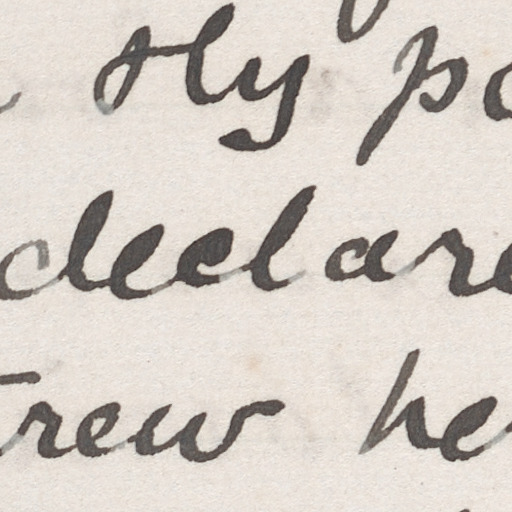 sly po
declare
trew he